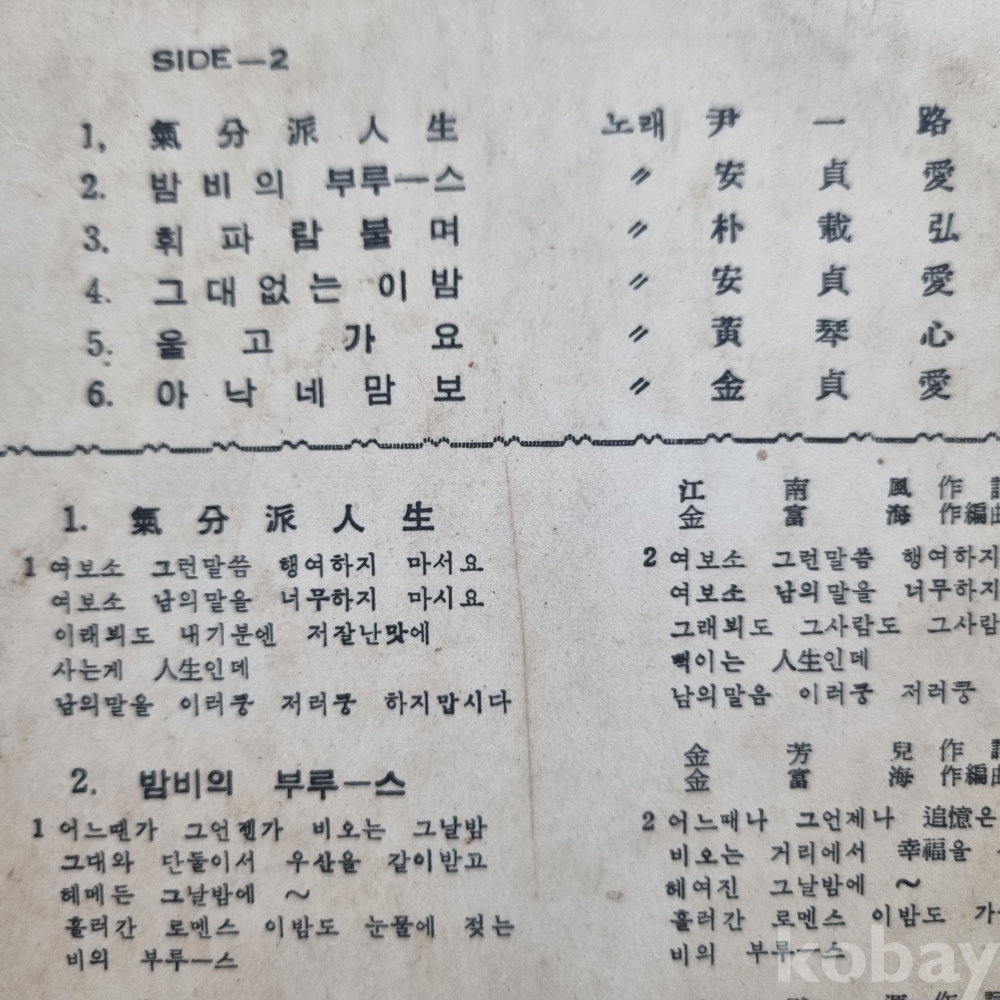 SIDE—2
1, 氣分派人生 노래 尹一路
2. 밤비의 부루ー스 〃 安貞愛
3. 휘파람불며 〃 朴載弘
4. 그대없는이밤 〃 安貞愛
5. 울고가요 〃 黃琴心
6. 아낙네맘보 〃 金貞愛
1. 氣分派人生
江南風 作詞
金富海 作編曲
1 여보소 그런말씀 행여하지 마서요
여보소 남의말을 너무하지 마시요
이래뵈도 내기분엔 저잘난맛에
사는게 人生인데
남의말을 이러쿵 저러쿵 하지맙시다
2 여보소 그런말씀 행여하지
여보소 남의말을 너무하지
그래뵈도 그사람도 그사람
뻑이는 人生인데
남의말음 이러쿵 저러쿵
2. 밤비의 부루ー스
金芳兒 作詞
金富海 作編曲
1 어느땐가 그언젠가 비오는 그날밤
그대와 단둘이서 우산을 같이받고
헤메든 그날밤에 ～
흘러간 로멘스 이밤도 눈물에 젖는
비의 부루ー스
2 어느때나 그언제나 追憶은
비오는 거리에서 幸福을
헤여진 그날밤에 ～
흘러간 로멘스 이밤도
비의 부루ー스
kobay